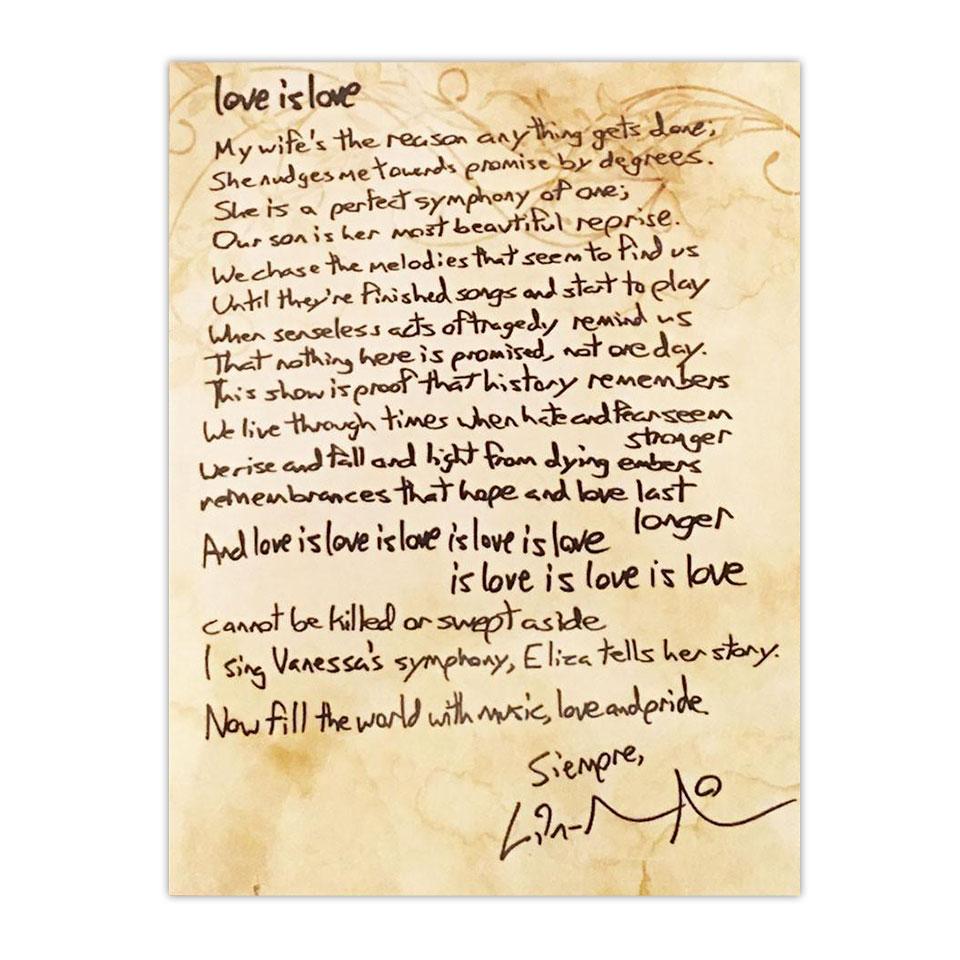 love is love
My wife's the reason anything gets done;
She nudges me towards promise by degrees.
She is a perfect symphony of one;
Our son is her most beautiful reprise.
We chase the melodies that seem to find us
Until they're finished songs and start to play
When senseless acts of tragedy remind us
That nothing here is promised, not one day.
This show is proof that history remembers
We live through times when hate and fear seem
stronger
We rise and fall and light from dying embers
remembrances that hope and love last
longer
And love is love is love is love is love
is love is love is love
cannot be killed or swept aside
I sing Vanessa's symphony, Eliza tells her story.
Now fill the world with music, love and pride.
Siempre,
Lin-M